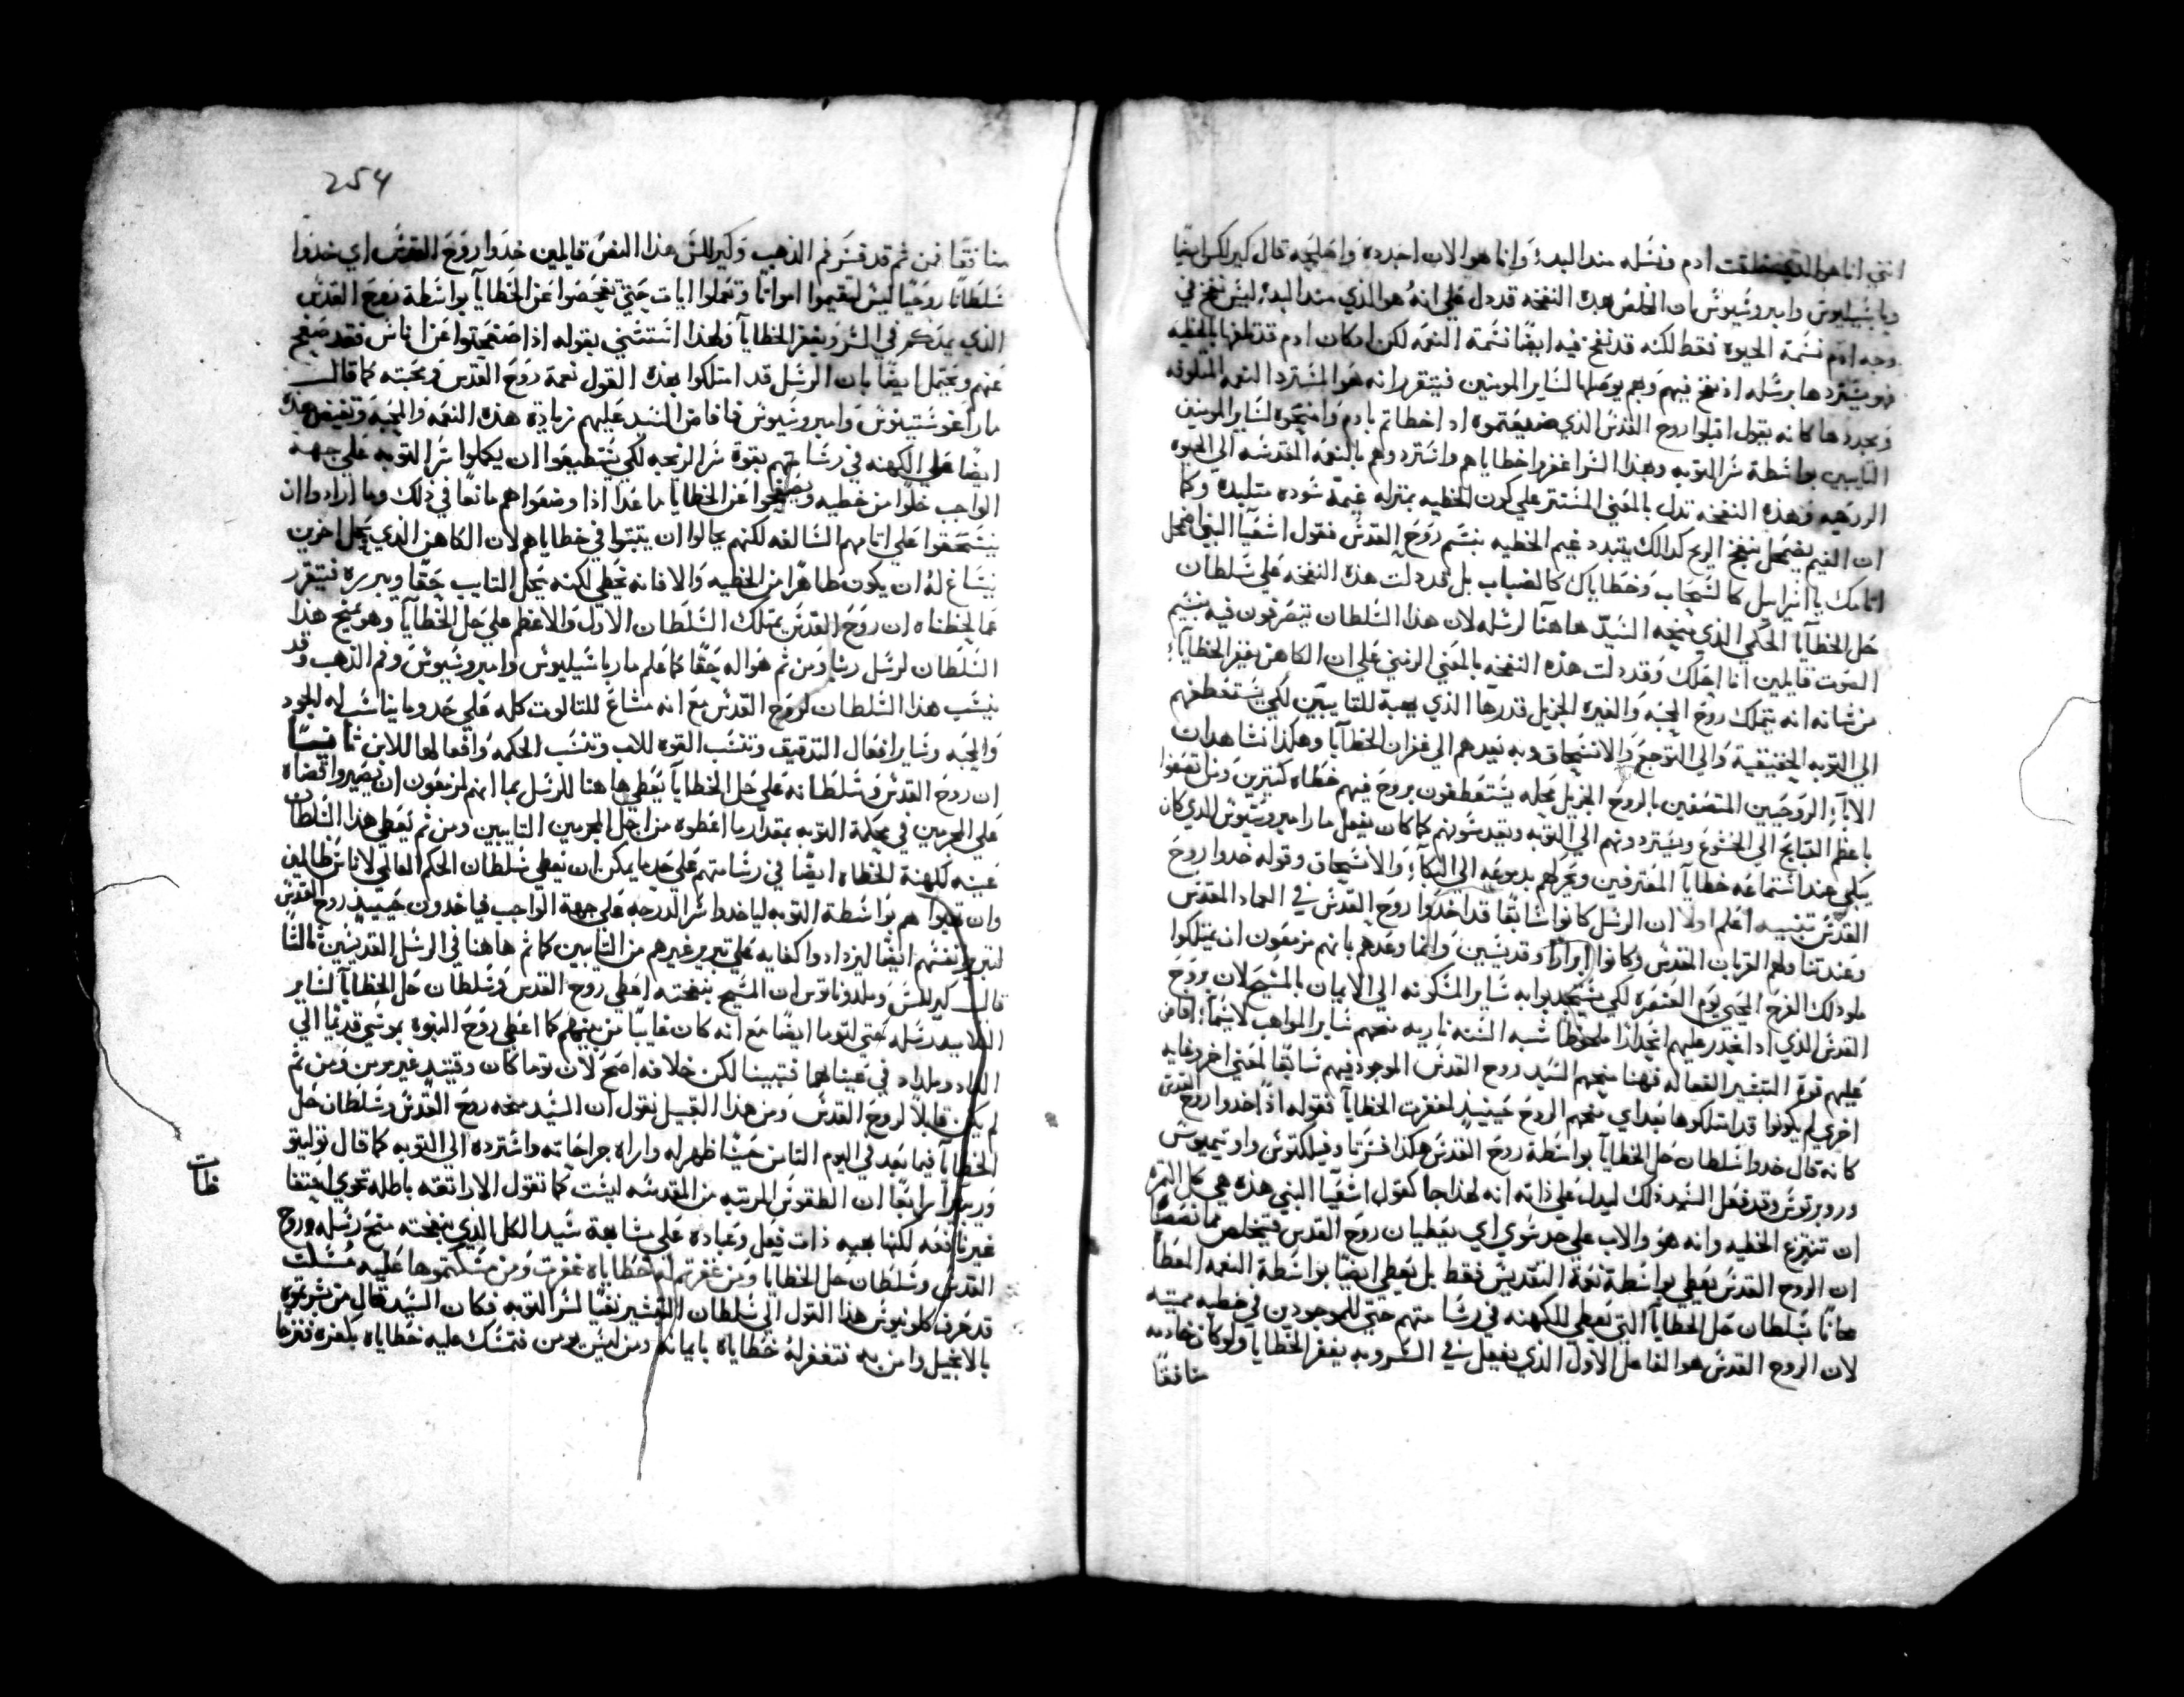 انني انا هو الذي خلقت ادم ونسله منذ البدء وانا هو الان اجدده واحييه قال كيرللس ايضا
وباسيليوس وامبروسيوس ان المخلص بهذه النفخه قد دل علي انه هو الذي منذ البدء ليس نفخ في
وجه ادم نسمة الحيوه فقط لكنه قد نفخ فيه ايضا نسمة النعمه لكن اذ كان ادم قد تلفها بالخطيه
فهو يستردها برسله اذ نفخ فيهم وهم يوصلها لساير المومنين فيتقرر انه هو المسترد النعمه المتلوفه
ويجددها كانه يقول اقبلوا روح القدس الذي ضيعتموه اذ اخطاتم بادم وامنحوه لساير المومنين
التايبين بواسطة سر التوبه وبهذا السر اغفروا خطاياهم واستردوهم بالنعمه المقدسه الي الحيوه
الروحيه وهذه النفخه تدل بالمعني المستتر علي كون الخطيه بمنزلة غيمة سوده متلبده وكما
ان الغيم يضمحل بنفخ الريح كذالك يتبدد غيم الخطيه بنسم روح القدس فقول اشعيا النبي اضمحل
اثامك يا اسراييل كالسحاب وخطاياك كالضباب بل قد دلت هذه النفخه علي سلطان
حل الخطايا الحكمي الذي منحه السيد هاهنا لرسله لان هذا السلطان يتصرفون فيه بنسيم
الصوت قايلين انا احلك وقد دلت هذه النفخه بالمعني الرمزي علي ان الكاهن يغفر الخطايا
من شانه انه يتملك روح المحبه والغيره الجزيل قدرها الذي يهبه للتايبين لكي يستعطفهم
الي التوبه الحقيقية والي التوجع والانسحاق وبه يعيدهم الي غفران الخطايا وهكذا نشاهد ان
الابآء الروحيين المتصفين بالروح الجزيل محله يستعطفون بروح فيهم خطاه كثيرين ومن اتصفوا
باعظم القبايح الي الخشوع ويستردونهم الي التوبه ويقدسونهم كما كان يفعل مار امبروسيوس الذي كان
يبكي عند استماعه خطايا المعترفين ويحركهم بدموعه الي البكآء والانسحاق وقوله خدوا روح
القدس تنبيه اعلم اولا ان الرسل كانوا سابقا قد اخدوا روح القدس في العماد المقدس
وعند تناولهم القربان المقدس وكانوا ابرارا وقديسين وانما وعدهم بانهم مزمعون ان يمتلكوا
ملو ذلك الفرح المحيي يوم العنصره لكي يستجدبوا به ساير المسكونه الي الايمان بالمسيح لان بروح
القدس الذي اذا انحدر عليهم انحدارا ملحوظا شبه السنه ناريه منحهم ساير المواهب لاسيما افاض
عليهم قوة التبشير الفعاله فهنا منحهم السيد روح القدس الموجود فيهم سابقا لمعني اخر وغايه
اخري لم يكونوا قد امتلكوها بعد اي منحهم الروح حينيذ لمغفرة الخطايا فقوله اذا خدوا روح القدس
كانه قال خدوا سلطان حل الخطايا بواسطة روح القدس هكذا فسر تاوفيلكتوس واوتيميوس
وروبرتوس وقد فعل السيد ذلك ليدل علي ذاته انه لهذا جا كقول اشعيا النبي هذه هي كل الثمر
ان تنتزع الخطيه وانه هو والاب علي حد سوي اي يعطيان روح القدس فيتخلص مما نقصها
ان الروح القدس يعطي بواسطة نعمة التقديس فقط بل يعطي ايضا بواسطة النعمه المعطا
مجانا بسلطان حل الخطايا التي تعطي للكهنه في رسامتهم حتي للموجودين في خطيه مميته
لان الروح القدس هو الفاعل الاول الذي يفعل في السر وبه يغفر الخطايا ولو كان خادمه
منافقا
254
منافقا فمن ثم قد فسر فم الذهب وكيرللس هذا النص قايلين خدوا روح القدس اي خدوا
سلطانا روحيا ليس لتقيموا امواتا وتعملوا ايات حتي تفحصوا عن الخطايا بواسطة روح القدس
الذي يمدكم في السر ويغفر الخطايا ولهذا استتني بقوله اذا صفحتوا عن اناس فقد صفح
عنهم ويحتمل ايضا بان الرسل قد امتلكوا بهذه القول نعمة روح القدس ومحبته كما قال
مار اغوستينوس وامبروسيوس فافاض السيد عليهم زيادة هذه النعمه والمحبه وتفيض هذه
ايضا علي الكهنه في رسامتهم بقوة سر الدرجه لكي يستطيعوا ان يكملوا سر التوبه علي جهة
الواجب خلوا من خطيه ويصفحوا عن الخطايا ما عدا اذا وضعوا هم مانعا في ذلك وما ارادوا ان
ينسحقوا علي اثامهم السالفه لكنهم يحالوا ان يتبتوا في خطاياهم لان الكاهن الذي يحل اخرين
ينساغ له ان يكون طاهرا من الخطيه والا فانه يخطي لكنه يحل التايب حقا ويبرره فيتقرر
مما لحظناه ان روح القدس يمتلك السلطان الاول والاعظم علي حل الخطايا وهو يمنح هذا
السلطان لرسل ربنا ومن ثم هو اله حقا كما علم مار باسيليوس وامبروسيوس وفم الذهب وقد
ينسب هذا السلطان لروح القدس مع انه مشاع للتالوت كله علي حد وما يناسب له الجود
والمحبه وساير افعال التدقيق وتنسب القوه للاب وتنسب الحكمه وافعالها للابن ثانيسا
ان روح القدس وسلطانه علي حل الخطايا يعطي هاهنا للرسل بما انهم مزمعون ان يصيروا قضاة
علي المجرمين في محكمة التوبه بمقدار ما اعطوه من اجل المجرمين التايبين ومن ثم يعطي هذا السلطان
عينه لكهنة الخطاه ايضا في رسامتهم علي حد ما يمكن ان يعطي سلطان الحكم العالمي لاناس ظالمين
وان تقبلوا هم بواسطة التوبه لياخدوا سر الدرجه علي جهة الواجب فياخدون حينيذ روح القدس
لتبرير نفسهم ايضا ليزدادوا كفايه علي تبرير غيرهم من التايبين كما تم هاهنا في الرسل القديسين ثالثا
قال كيرللس وملدوناتوس ان المسيح بنفخته اعطي روح القدس وسلطان حل الخطايا لساير
التلاميد رسله حتي لتوما ايضا مع انه كان غايبا من بينهم كما اعطي روح النبوه بموسي قديما الي
الداد وملداد في غيابهما فتنبينا لكن خلافه اصح لان توما كان وقتيذ غير مومن ومن ثم
لم يكن قابلا لروح القدس ومن هذا القبيل نقول ان السيد منحه روح القدس وسلطان حل
الخطايا فيما بعد في اليوم الثامن حيثما ظهر له واراه جراحاته واسترده الي التوبه كما قال توليتو
وريبيرا رابعا ان الطقوس المرتبه من المقدسه ليست كما تقول الاراتقه باطله تحوي اختفا
غير نافعه لكنها هيه ذات فعل وعباده علي مشابهة سيد الكل الذي بنفخته منح رسله روح
القدس وسلطان حل الخطايا ومن غفرتم له خطاياه غفرت ومن مسكتموها عليه مسكت
قد حرف كلونيوس هذا القول الي سلطان التبشير نفيا لسر التوبه فكان السيد قال من بشرتموه
بالانجيل وامن به فتغفر له خطاياه بايمانه ومن ليس يومن فتمسك عليه خطاياه بكفره فنزحا